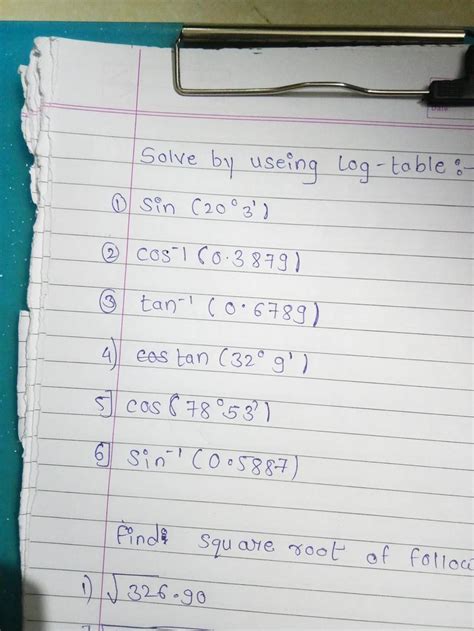 Date
Solve by useing Log-table :-
① sin (20°3')
② cos-1 (0.3879)
③ tan-1 (0.6789)
4) cos tan (32° 9')
5] cos (78°53')
6] sin-1 (0.5887)
Find: square root of follow
1) √326.90